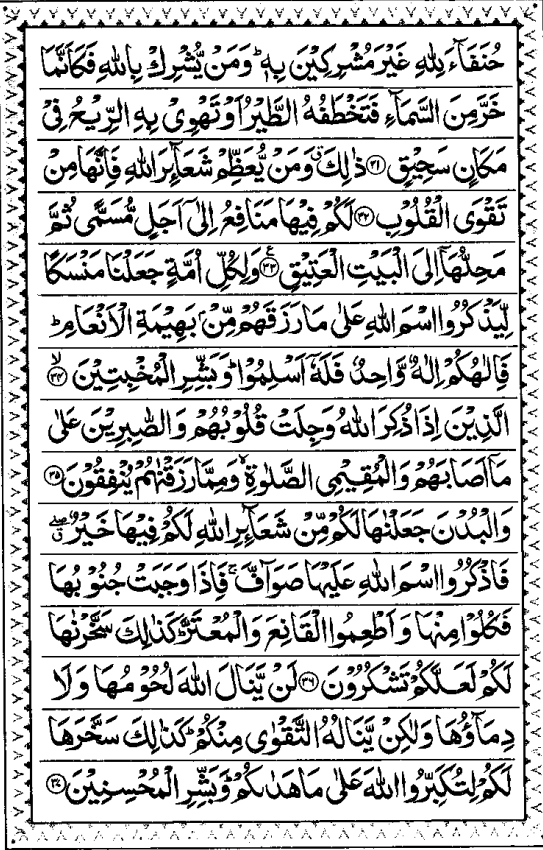 حُنَفَآءَ لِلّٰهِ غَيْرَ مُشْرِكِيْنَ بِهٖؕ وَمَنْ يُّشْرِكْ بِاللّٰهِ فَكَاَنَّمَا
خَرَّ مِنَ السَّمَآءِ فَتَخْطَفُهُ الطَّيْرُ اَوْ تَهْوِىْ بِهِ الرِّيْحُ فِىْ
مَكَانٍ سَحِيْقٍ ۝۳۱ ذٰلِكَۗ وَمَنْ يُّعَظِّمْ شَعَآئِرَ اللّٰهِ فَاِنَّهَا مِنْ
تَقْوَى الْقُلُوْبِ ۝۳۲ لَكُمْ فِيْهَا مَنَافِعُ اِلٰٓى اَجَلٍ مُّسَمًّى ثُمَّ
مَحِلُّهَاۤ اِلَى الْبَيْتِ الْعَتِيْقِ ۝۳۳ۧ وَلِكُلِّ اُمَّةٍ جَعَلْنَا مَنْسَكًا
لِّيَذْكُرُوا اسْمَ اللّٰهِ عَلٰى مَا رَزَقَهُمْ مِّنْۢ بَهِيْمَةِ الْاَنْعَامِؕ
فَاِلٰهُكُمْ اِلٰهٌ وَّاحِدٌ فَلَهٗۤ اَسْلِمُوْاؕ وَبَشِّرِ الْمُخْبِتِيْنَ ۝۳۴ۙ
الَّذِيْنَ اِذَا ذُكِرَ اللّٰهُ وَجِلَتْ قُلُوْبُهُمْ وَالصّٰبِرِيْنَ عَلٰى
مَاۤ اَصَابَهُمْ وَالْمُقِيْمِى الصَّلٰوةِۙ وَمِمَّا رَزَقْنٰهُمْ يُنْفِقُوْنَ ۝۳۵
وَالْبُدْنَ جَعَلْنٰهَا لَكُمْ مِّنْ شَعَآئِرِ اللّٰهِ لَكُمْ فِيْهَا خَيْرٌۖۗ
فَاذْكُرُوا اسْمَ اللّٰهِ عَلَيْهَا صَوَآفَّۚ فَاِذَا وَجَبَتْ جُنُوْبُهَا
فَكُلُوْا مِنْهَا وَاَطْعِمُوا الْقَانِعَ وَالْمُعْتَرَّؕ كَذٰلِكَ سَخَّرْنٰهَا
لَكُمْ لَعَلَّكُمْ تَشْكُرُوْنَ ۝۳۶ لَنْ يَّنَالَ اللّٰهَ لُحُوْمُهَا وَلَا
دِمَآؤُهَا وَلٰكِنْ يَّنَالُهُ التَّقْوٰى مِنْكُمْؕ كَذٰلِكَ سَخَّرَهَا
لَكُمْ لِتُكَبِّرُوا اللّٰهَ عَلٰى مَا هَدٰىكُمْؕ وَبَشِّرِ الْمُحْسِنِيْنَ ۝۳۷